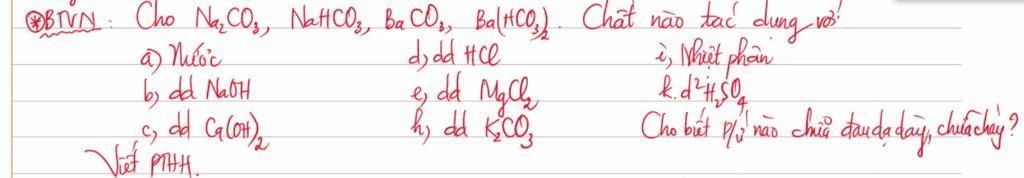 ⊛BTVN: Cho Na₂CO₃, NaHCO₃, BaCO₃, Ba(HCO₃)₂. Chất nào tác dụng với:
a) Nước d, dd HCl i, Nhiệt phân
b, dd NaOH e, dd MgCl₂ k. d² H₂SO₄
c, dd Ca(OH)₂ h, dd K₂CO₃ Cho biết p/ứ nào chữa đau dạ dày, chữa cháy?
Viết PTHH.